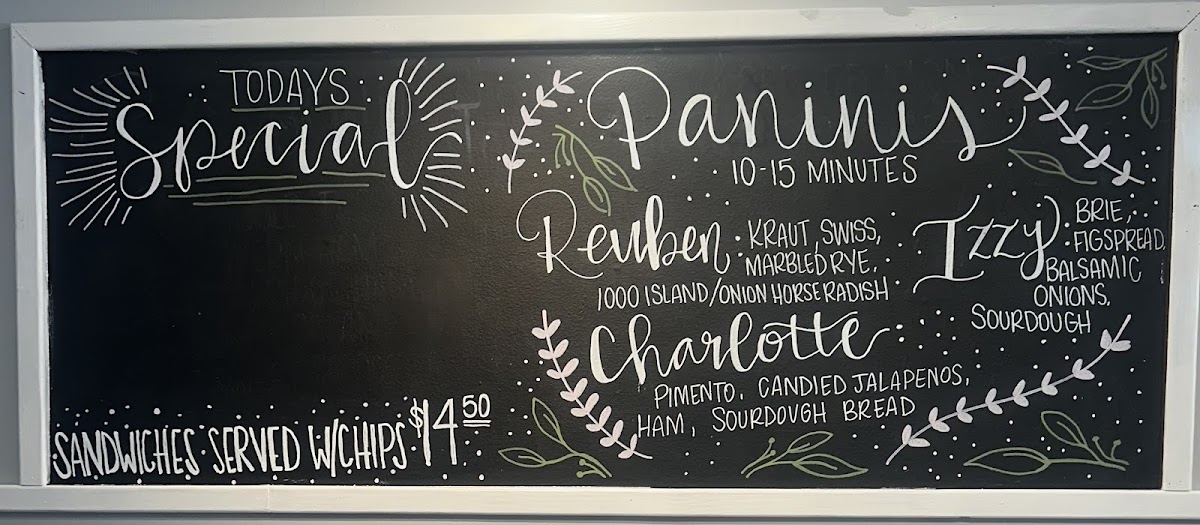 TODAYS
Special
SANDWICHES SERVED W/CHIPS $14 50
Paninis
10-15 MINUTES
Reuben KRAUT, SWISS,
MARBLED RYE,
1000 ISLAND/ONION HORSERADISH
Izzy BRIE,
FIGSPREAD,
BALSAMIC
ONIONS,
SOURDOUGH
Charlotte
PIMENTO, CANDIED JALAPENOS,
HAM, SOURDOUGH BREAD